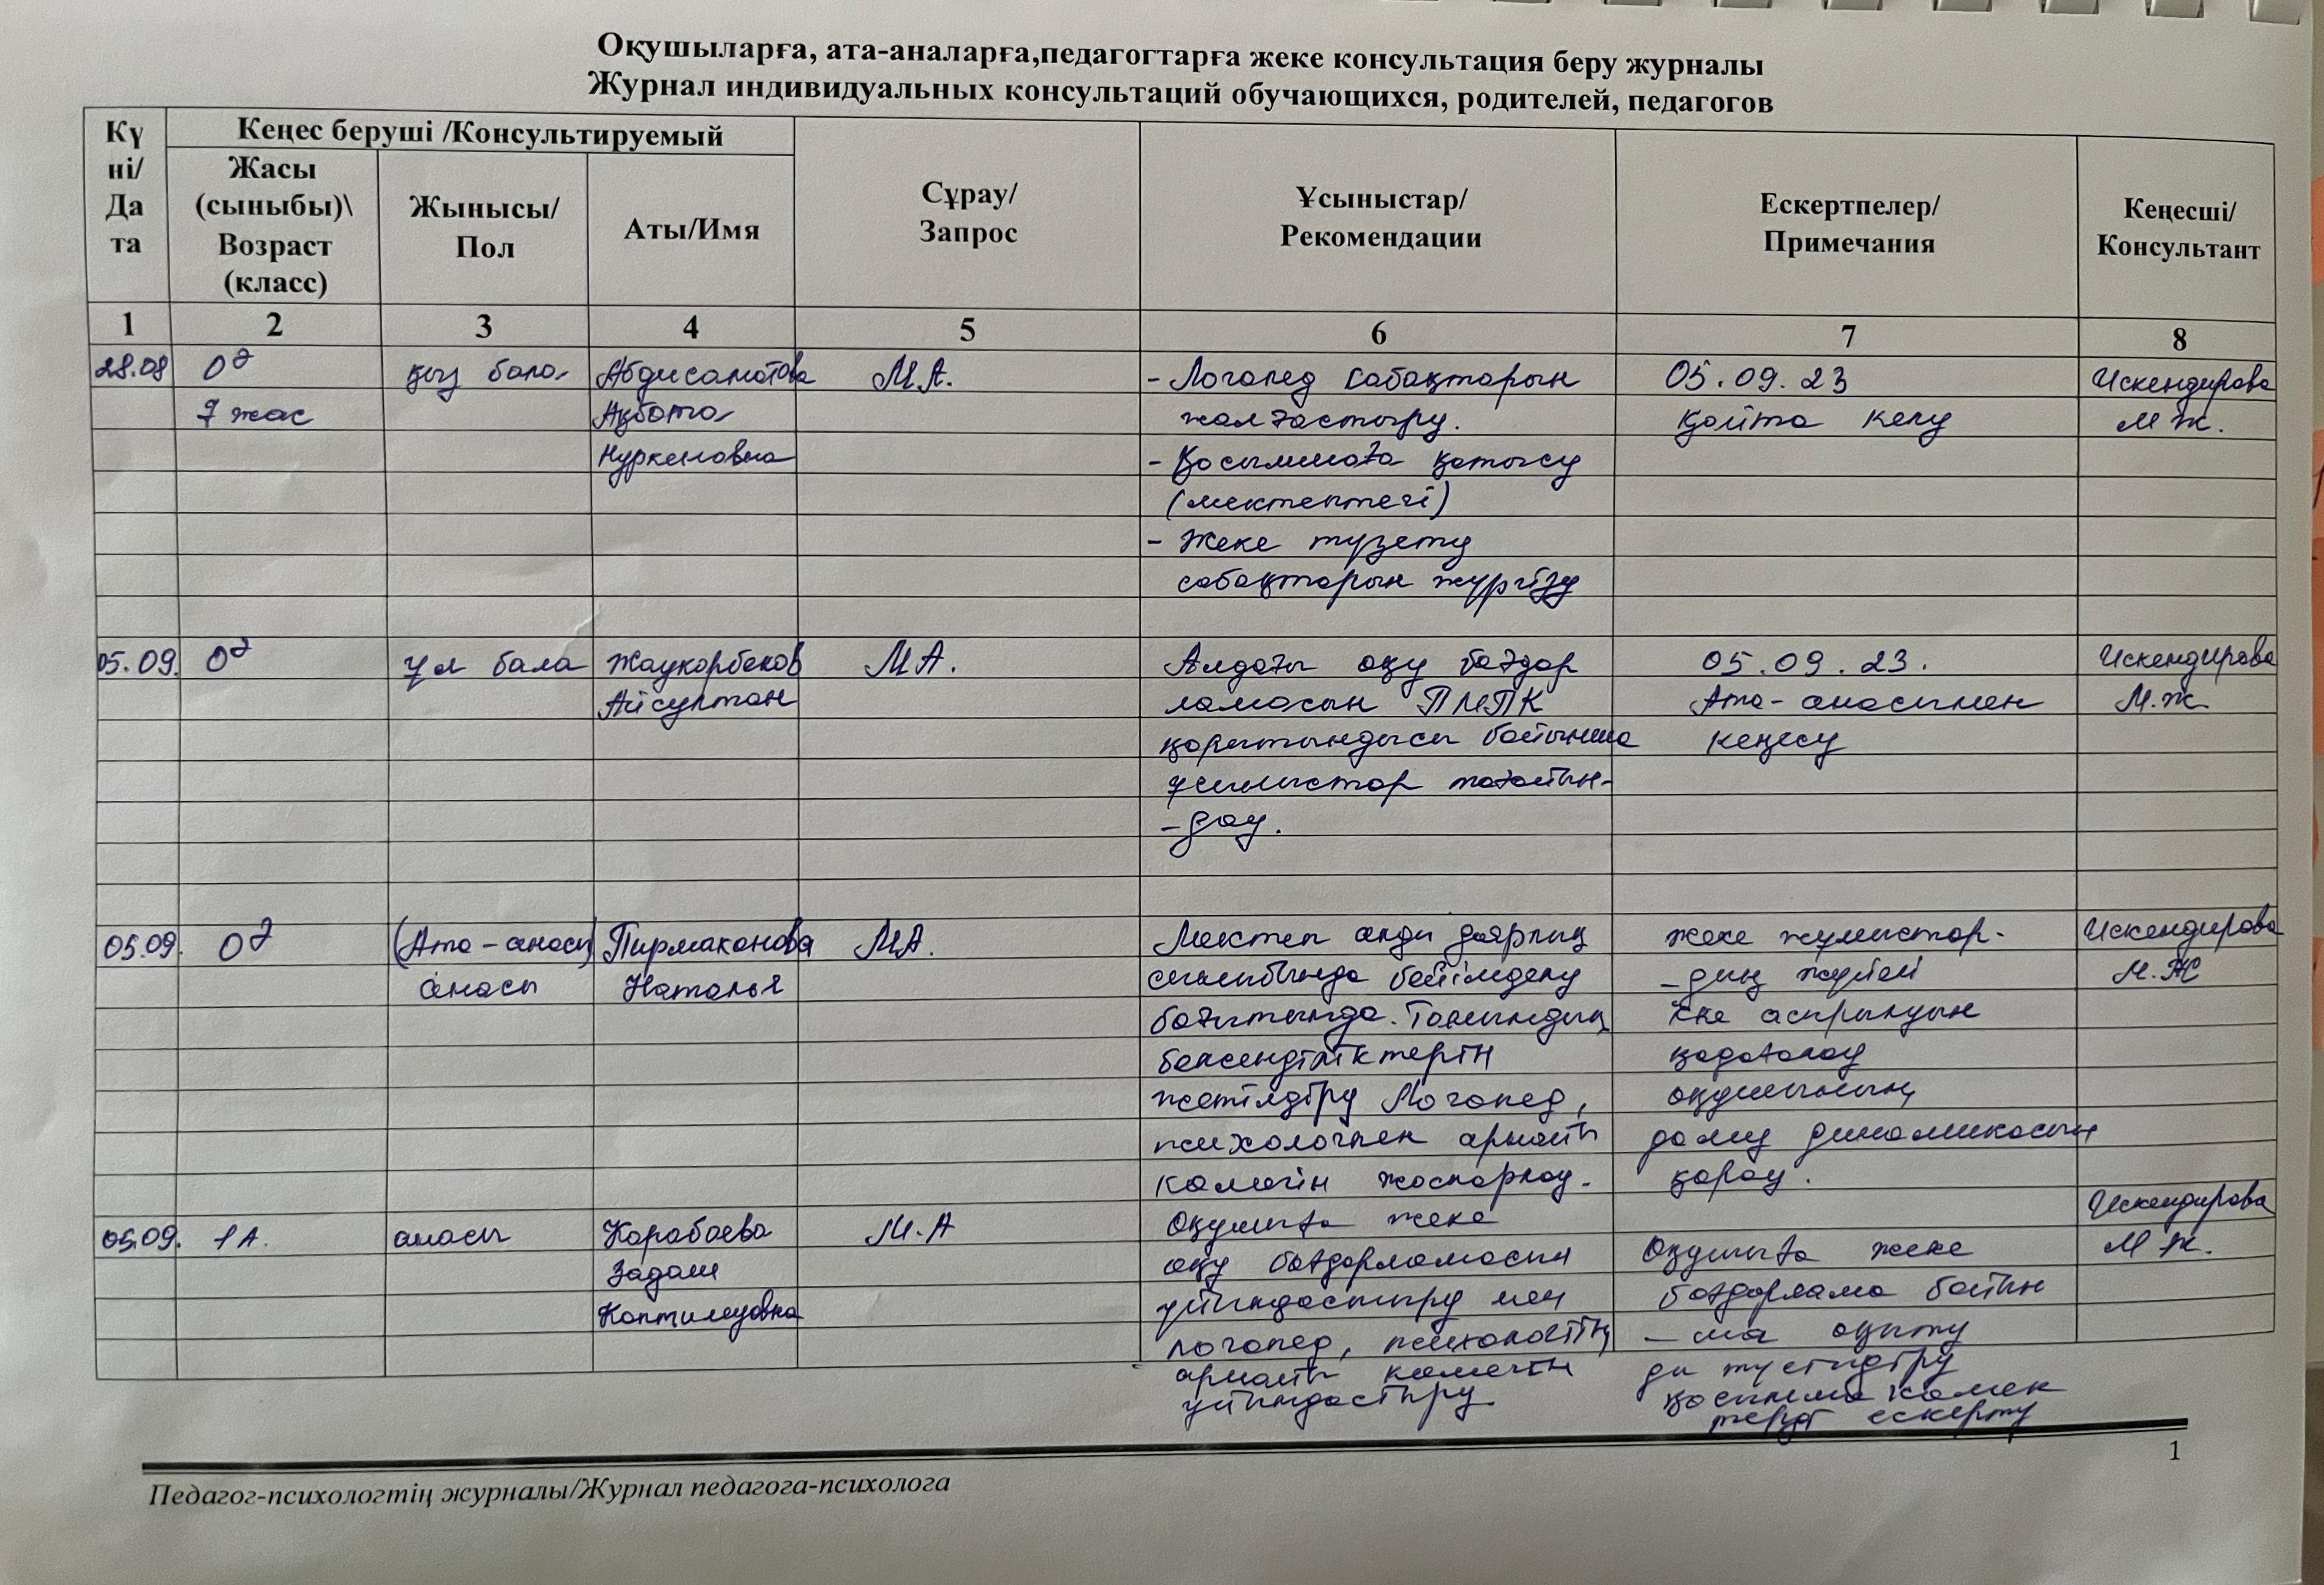 Оқушыларға, ата-аналарға,педагогтарға жеке консультация беру журналы
Журнал индивидуальных консультаций обучающихся, родителей, педагогов
Кү
ні/
Да
та
Кеңес беруші /Консультируемый
Жасы
(сыныбы)\
Возраст
(класс)
Жынысы/
Пол
Аты/Имя
Сұрау/
Запрос
Ұсыныстар/
Рекомендации
Ескертпелер/
Примечания
Кеңесші/
Консультант
1 2 3 4 5 6 7 8
28.08 0д қыз бала Абдисаматова М.А. - Логопед сабақтарын 05.09.23 Искендирова
7 жас Ақбота жалғастыру. Қайта келу М Ж.
Нуркеновна - Қосымшаға қатысу
(мектептегі)
- Жеке түзету
сабақтарын жүргізу
05.09. 0д ұл бала Жаукорбеков М.А. Алдағы оқу бағдар 05.09.23. Искендирова
Айсултан ламасын ПМПК Ата-анасымен М.Ж
қорытындысы бойынша кеңесу
ұсыныстар тағайын-
-дау.
05.09. 0д (Ата-анасы) Пирмаканова М.А. Мектеп алды даярлық жеке жұмыстар- Искендирова
анасы Наталья сыныбында бейімделу -дың жүйелі М.Ж
бағытында. Танымдық іске асырылуын
белсенділіктерін қадағалау
жетілдіру Логопед, оқушының
психологпен арнайы даму динамикасын
көмегін жоспарлау. қарау.
Искендирова
05.09. 1А. анасы Карабаева М.А Оқушыға жеке
Задаш оқу бағдарламасын Оқушыға жеке М Ж.
Коптилеуовна ұйымдастыру мен бағдарлама бойын
логопед, психологтің -ша оқыту
арнайы көмегін ды түсіндіру
ұйымдастыру. қосымша көмек
терді ескерту
1
Педагог-психологтің журналы/Журнал педагога-психолога